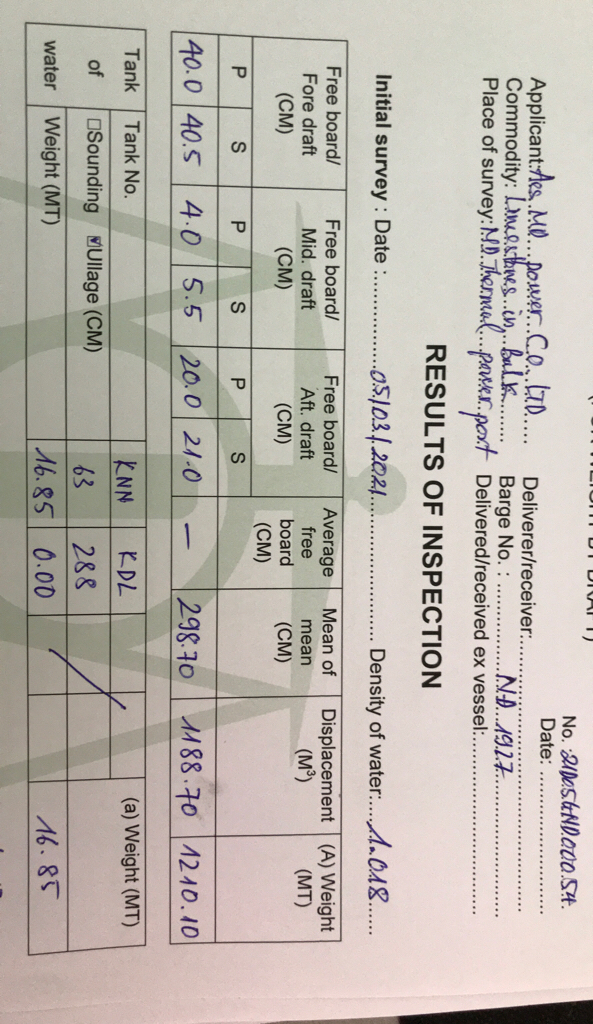 No. 21D054ND00054
Date: ....................
Applicant: Aes MD power Co. LTD Deliverer/receiver:
Commodity: Limestones in bulk Barge No. : NĐ 1927
Place of survey: MD Thermal power port Delivered/received ex vessel:
RESULTS OF INSPECTION
Initial survey : Date : 05/03/2021 Density of water: 1.018
Free board/ Fore draft (CM) Free board/ Mid. draft (CM) Free board/ Aft. draft (CM) Average free board (CM) Mean of mean (CM) Displacement (M³) (A) Weight (MT)
P S P S P S
40.0 40.5 4.0 5.5 20.0 21.0 — 298.70 1188.70 1210.10
Tank of water Tank No. KNN KDL (a) Weight (MT)
□Sounding ☑Ullage (CM) 63 288
Weight (MT) 16.85 0.00 16.85